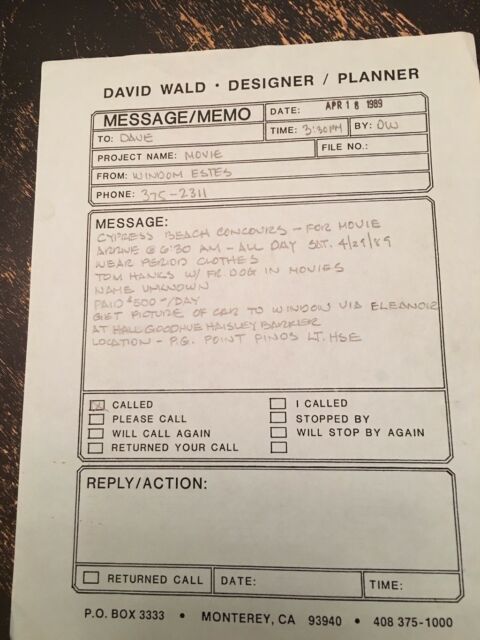 DAVID WALD • DESIGNER / PLANNER
MESSAGE/MEMO
DATE: APR 18 1989
TO: DAVE
TIME: 3:30PM BY: DW
PROJECT NAME: MOVIE
FILE NO.:
FROM: WINDOM ESTES
PHONE: 375-2311
MESSAGE:
CYPRESS BEACH CONCOURS - FOR MOVIE
ARRIVE @ 6:30 AM - ALL DAY SAT. 4/29/89
WEAR PERIOD CLOTHES
TOM HANKS W/ FR. DOG IN MOVIES
NAME UNKNOWN
PAID $500-/DAY
GET PICTURE OF CAR TO WINDOM VIA ELEANOR
AT HALL GOODHUE HAISLEY BARKER
LOCATION - P.G. POINT PINOS LT. HSE
CALLED
I CALLED
PLEASE CALL
STOPPED BY
WILL CALL AGAIN
WILL STOP BY AGAIN
RETURNED YOUR CALL
REPLY/ACTION:
RETURNED CALL DATE: TIME:
P.O. BOX 3333 • MONTEREY, CA 93940 • 408 375-1000